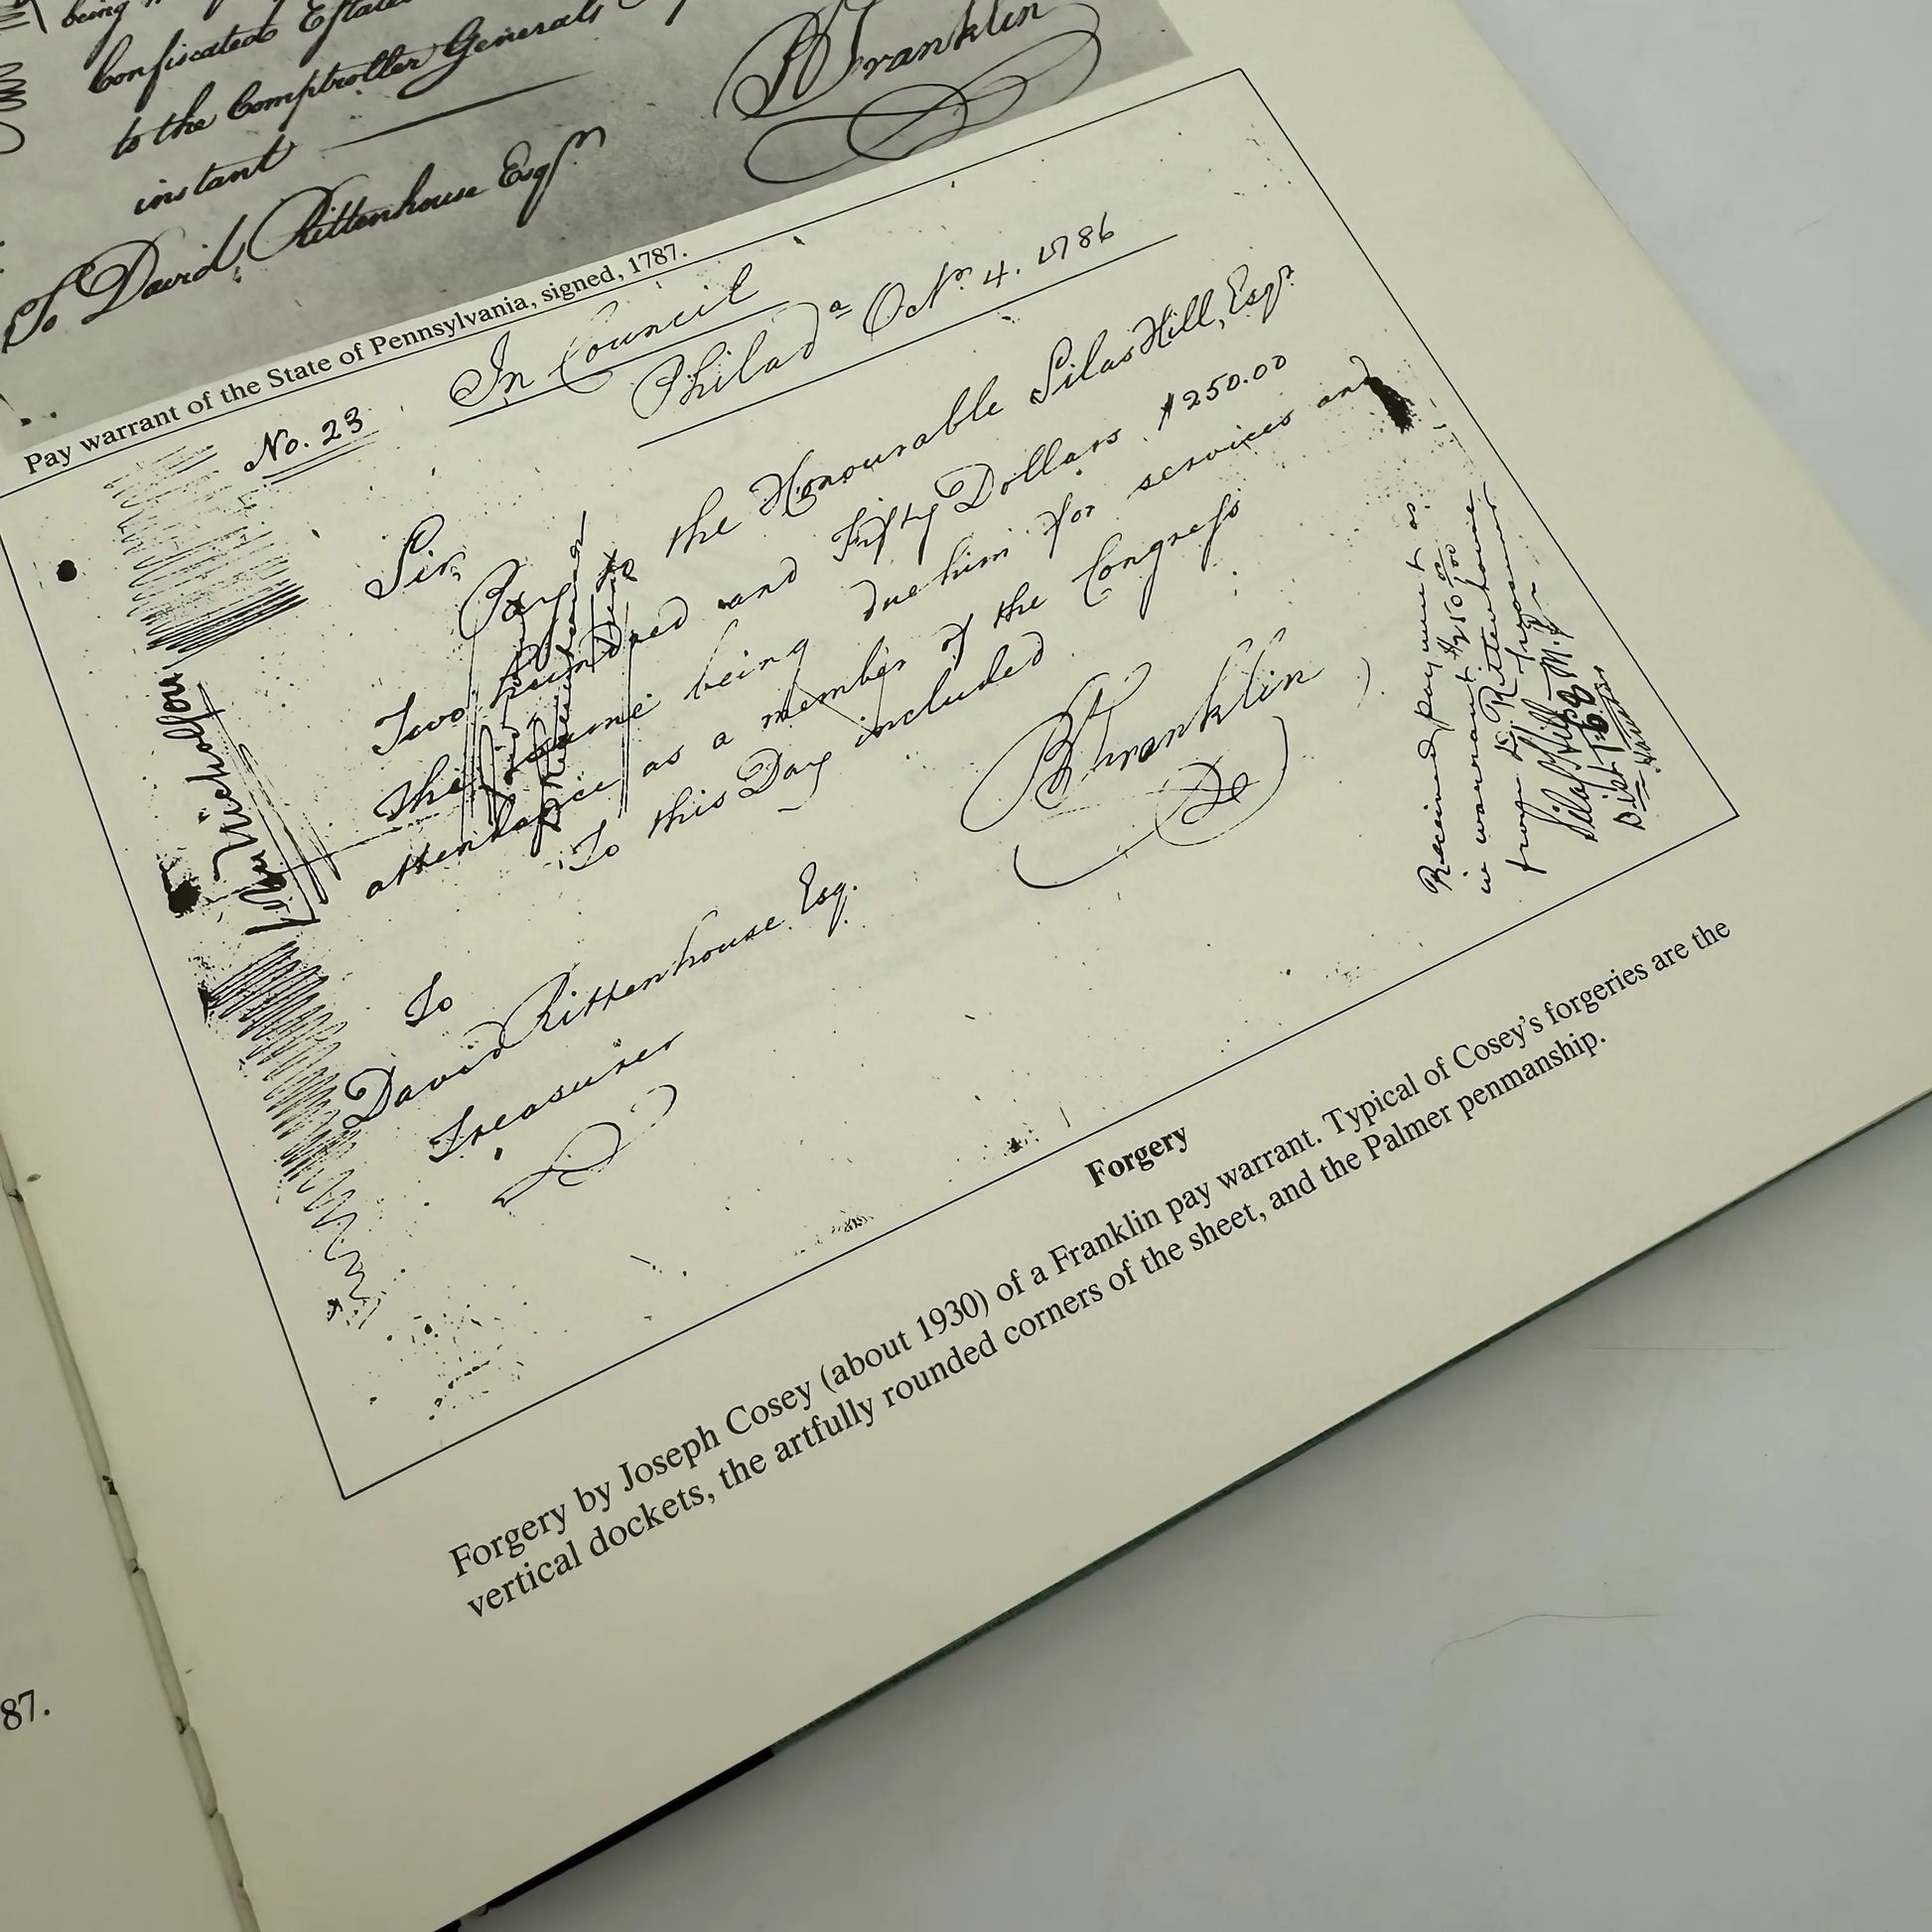 being
confiscated Estates
to the Comptroller Generals
instant
BFranklin
To David Rittenhouse Esqr
Pay warrant of the State of Pennsylvania, signed, 1787.
No. 23
In Council
Philada Octr. 4. 1786
Sir,
Pay to the Honourable Silas Hill, Esqr.
Two hundred and Fifty Dollars $250.00
The same being due him for services and
attendance as a member of the Congress
To this Day included
BFranklin
To
David Rittenhouse Esq.
Treasurer
Jno Nicholson
Received payment as
in warrant $250 00/100
from D. Rittenhouse,
treasurer
Silas Hill M.
Forgery
Forgery by Joseph Cosey (about 1930) of a Franklin pay warrant. Typical of Cosey's forgeries are the
vertical dockets, the artfully rounded corners of the sheet, and the Palmer penmanship.
87.